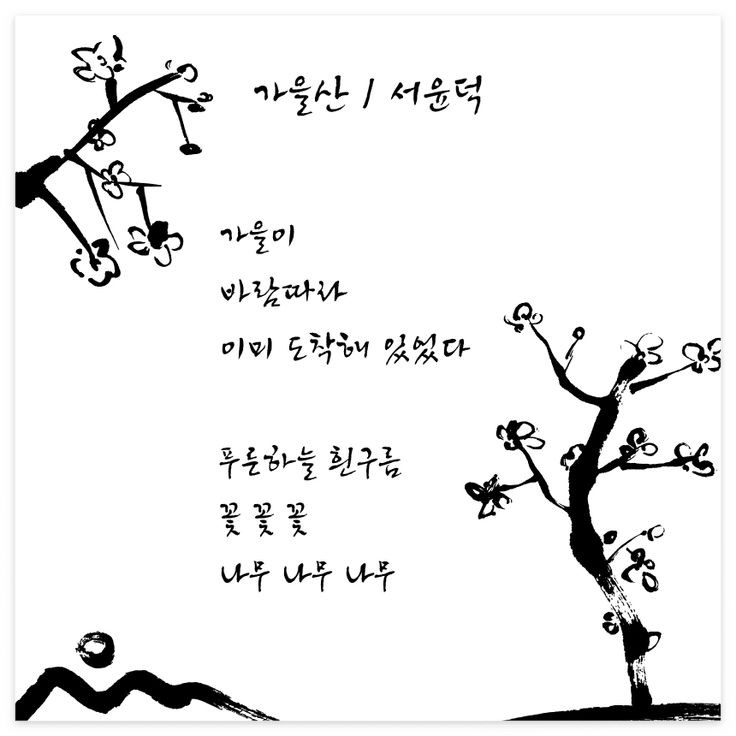 가을산 / 서윤덕
가을이
바람따라
이미 도착해 있었다
푸른하늘 흰구름
꽃 꽃 꽃
나무 나무 나무